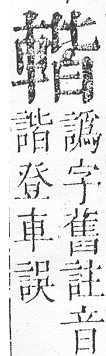 譌字舊註音
諧登車誤